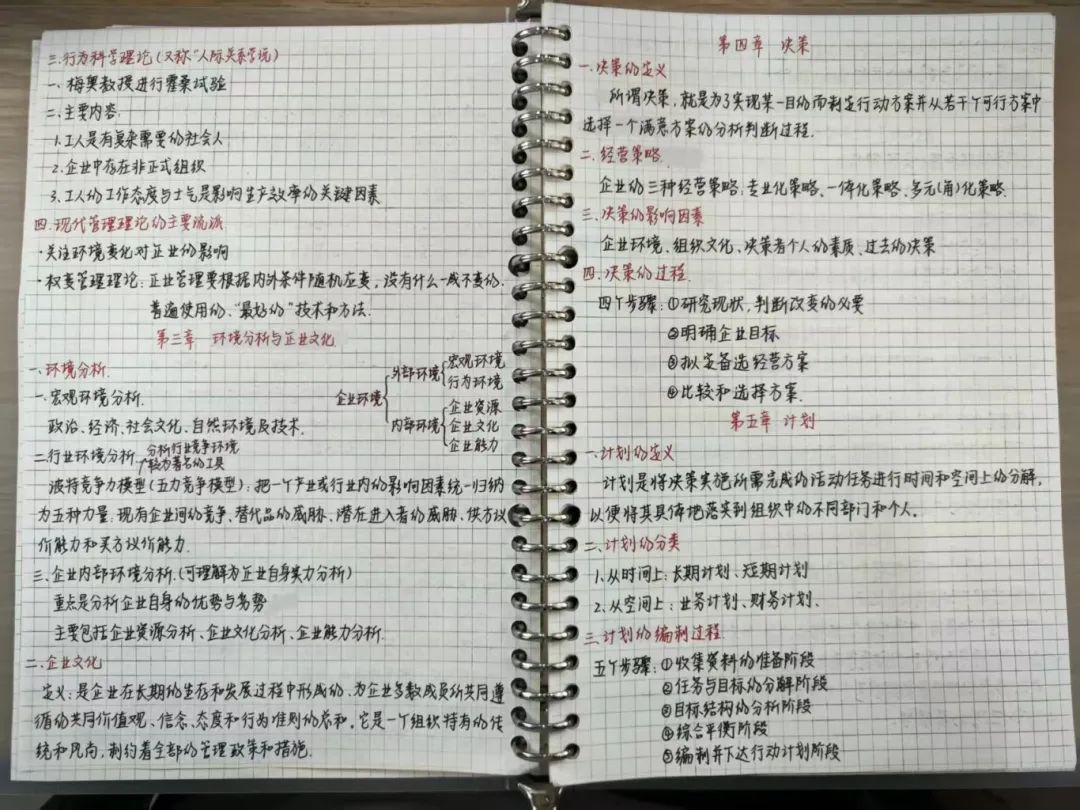 三.行为科学理论(又称"人际关系学说)
一、梅奥教授进行霍桑试验
二.主要内容:
1.工人是有复杂需要的社会人
2.企业中存在非正式组织
3.工人的工作态度与士气是影响生产效率的关键因素
四.现代管理理论的主要流派
·关注环境变化对企业的影响
·权变管理理论:企业管理要根据内外条件随机应变,没有什么一成不变的.
普遍使用的、"最好的"技术和方法.
第三章 环境分析与企业文化
一.环境分析.
一.宏观环境分析.
政治、经济、社会文化、自然环境及技术.
企业环境 外部环境 宏观环境 行为环境
内部环境 企业资源 企业文化 企业能力
二.行业环境分析 分析行业竞争环境
较为著名的工具
波特竞争力模型(五力竞争模型):把一个产业或行业内的影响因素统一归纳
为五种力量.现有企业间的竞争、替代品的威胁、潜在进入者的威胁、供方议
价能力和买方议价能力.
三.企业内部环境分析.(可理解为企业自身实力分析)
重点是分析企业自身的优势与劣势
主要包括企业资源分析、企业文化分析、企业能力分析.
二.企业文化
定义:是企业在长期的生存和发展过程中形成的、为企业多数成员所共同遵
循的共同价值观、信念、态度和行为准则的总和.它是一个组织特有的传
统和风尚,制约着全部的管理政策和措施.
第四章 决策
一.决策的定义
所谓决策,就是为了实现某一目的而制定行动方案并从若干个可行方案中
选择一个满意方案的分析判断过程.
二.经营策略
企业的三种经营策略:专业化策略、一体化策略、多元(角)化策略.
三.决策的影响因素
企业环境、组织文化、决策者个人的素质、过去的决策
四.决策的过程.
四个步骤:①研究现状,判断改变的必要
②明确企业目标
③拟定备选经营方案
④比较和选择方案.
第五章 计划
一.计划的定义
计划是将决策实施所需完成的活动任务进行时间和空间上的分解,
以便将其具体地落实到组织中的不同部门和个人.
二、计划的分类
1.从时间上:长期计划、短期计划
2.从空间上:业务计划、财务计划.
三.计划的编制过程
五个步骤:①收集资料的准备阶段
②任务与目标的分解阶段
③目标结构的分析阶段
④综合平衡阶段
⑤编制并下达行动计划阶段